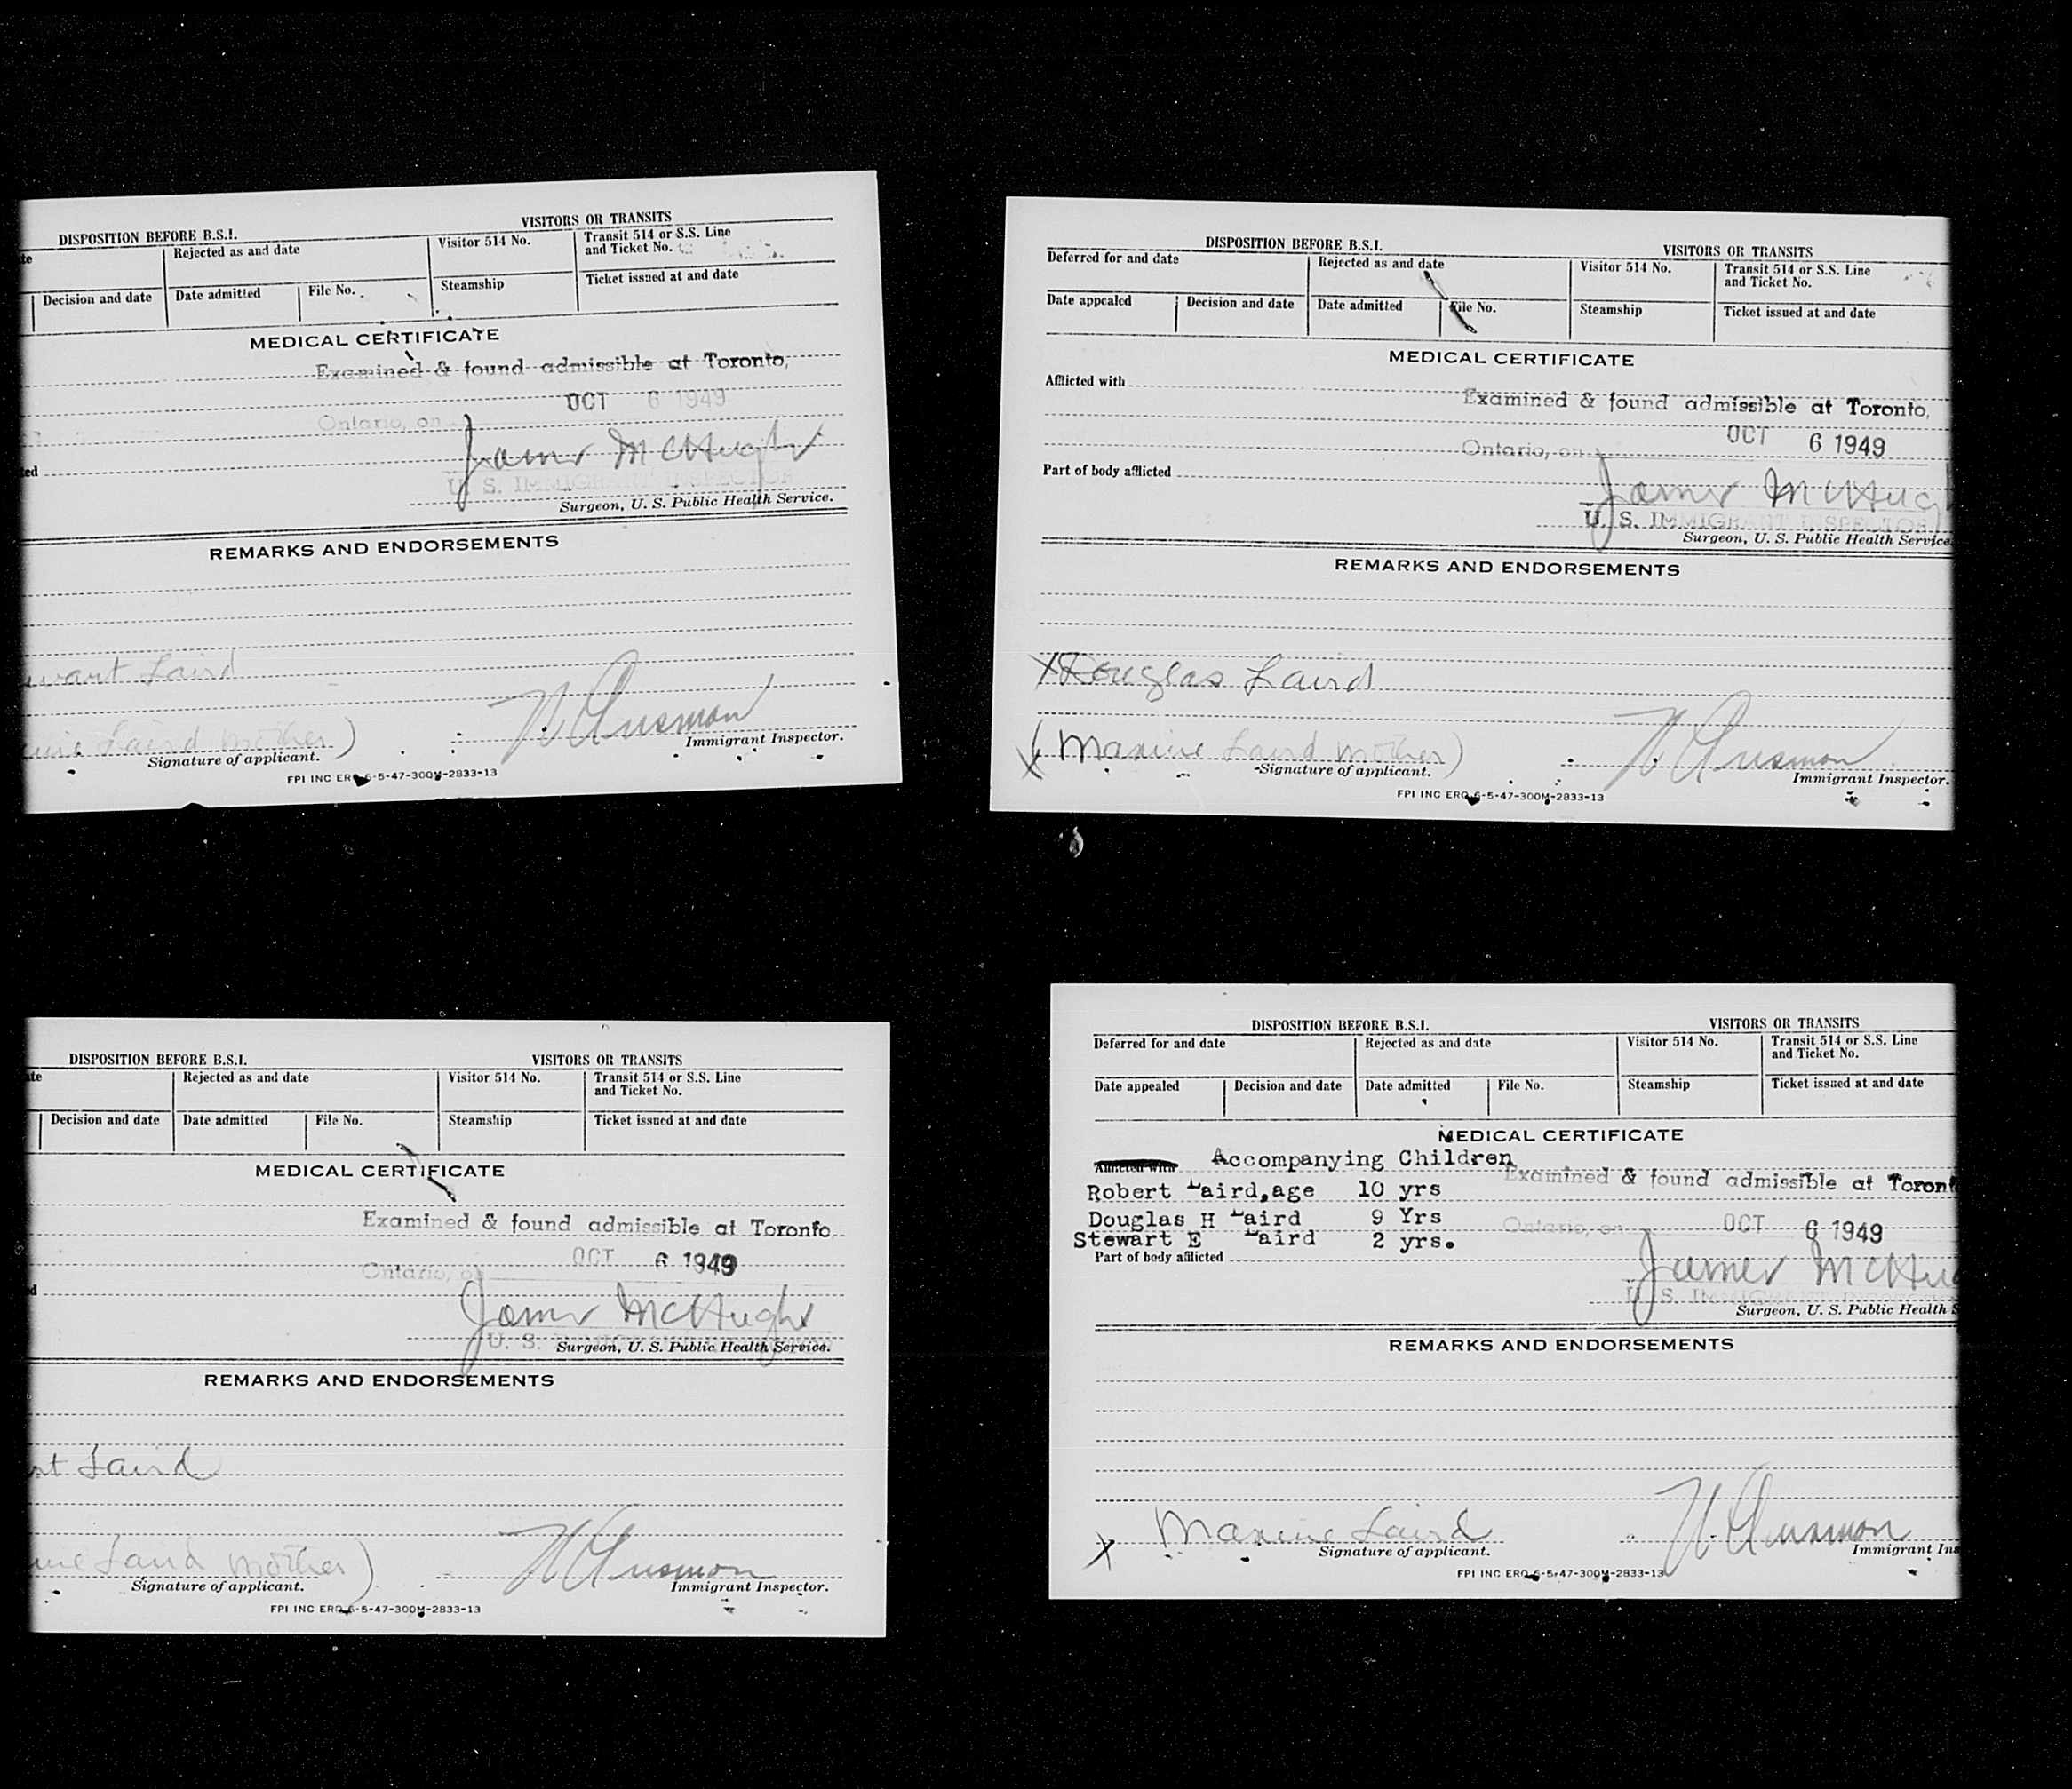 DISPOSITION BEFORE B.S.I.
VISITORS OR TRANSITS
te
Rejected as and date
Visitor 514 No.
Transit 514 or S.S. Line
and Ticket No.
Decision and date
Date admitted
File No.
Steamship
Ticket issued at and date
MEDICAL CERTIFICATE
Examined & found admissible at Toronto,
Ontario, on OCT 6 1949
James McHugh
ted
U. S. IMMIGRANT INSPECTOR
Surgeon, U. S. Public Health Service.
REMARKS AND ENDORSEMENTS
wart Laird
Laird mother)
Signature of applicant.
Immigrant Inspector.
FPI INC ERO 6-5-47-300M-2833-13
DISPOSITION BEFORE B.S.I.
VISITORS OR TRANSITS
Deferred for and date
Rejected as and date
Visitor 514 No.
Transit 514 or S.S. Line
and Ticket No.
Date appealed
Decision and date
Date admitted
File No.
Steamship
Ticket issued at and date
MEDICAL CERTIFICATE
Afflicted with
Examined & found admissible at Toronto,
Ontario, on OCT 6 1949
Part of body afflicted
James McHugh
U. S. IMMIGRANT INSPECTOR
Surgeon, U. S. Public Health Service
REMARKS AND ENDORSEMENTS
X Douglas Laird
X (Maxine Laird mother)
Signature of applicant.
Immigrant Inspector.
FPI INC ERO 6-5-47-300M-2833-13
DISPOSITION BEFORE B.S.I.
VISITORS OR TRANSITS
ate
Rejected as and date
Visitor 514 No.
Transit 514 or S.S. Line
and Ticket No.
Decision and date
Date admitted
File No.
Steamship
Ticket issued at and date
MEDICAL CERTIFICATE
Examined & found admissible at Toronto
Ontario, on OCT 6 1949
d
James McHugh
U. S.
Surgeon, U. S. Public Health Service.
REMARKS AND ENDORSEMENTS
rt Laird
ine Laird mother)
Signature of applicant.
Immigrant Inspector.
FPI INC ERO 6-5-47-300M-2833-13
DISPOSITION BEFORE B.S.I.
VISITORS OR TRANSITS
Deferred for and date
Rejected as and date
Visitor 514 No.
Transit 514 or S.S. Line
and Ticket No.
Date appealed
Decision and date
Date admitted
File No.
Steamship
Ticket issued at and date
MEDICAL CERTIFICATE
Afflicted with
Accompanying Children
Examined & found admissible at Toront
Robert Laird, age 10 yrs
Douglas H Laird 9 Yrs
Ontario, on OCT 6 1949
Stewart E Laird 2 yrs.
Part of body afflicted
James McHug
U. S. IMMIGRANT INSPECTOR
Surgeon, U. S. Public Health S
REMARKS AND ENDORSEMENTS
X Maxine Laird
Signature of applicant.
Immigrant Ins
FPI INC ERO 6-5-47-300M-2833-13